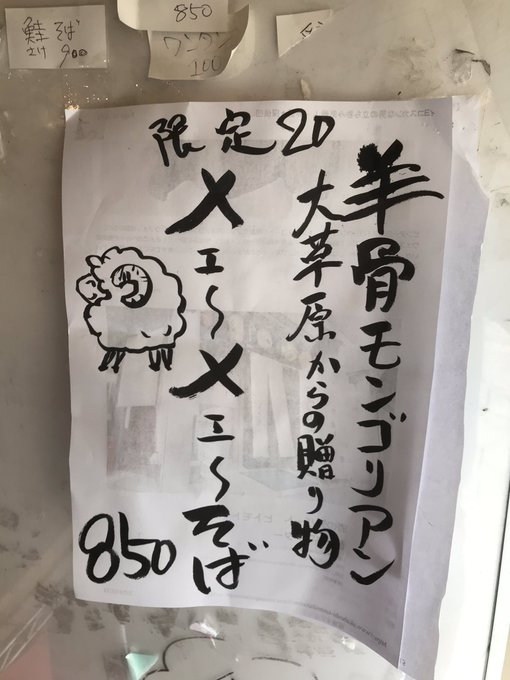 鮭そば
900
850
ワンタン
100
限定20
羊骨モンゴリアン
大草原からの贈り物
メェ〜メェ〜そば
850